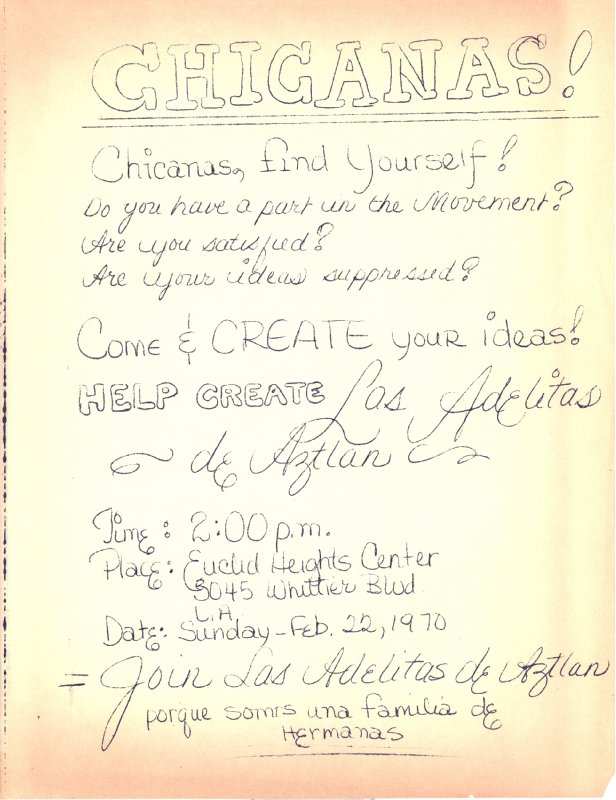 CHICANAS!
Chicanas, find Yourself!
Do you have a part in the Movement?
Are you satisfied?
Are your ideas suppressed?
Come & CREATE your ideas!
HELP CREATE Las Adelitas
de Aztlan
Time: 2:00 p.m.
Place: Euclid Heights Center
3045 Whittier Blvd
L.A.
Date: Sunday-Feb. 22, 1970
= Join Las Adelitas de Aztlan
porque somis una familia de
Hermanas